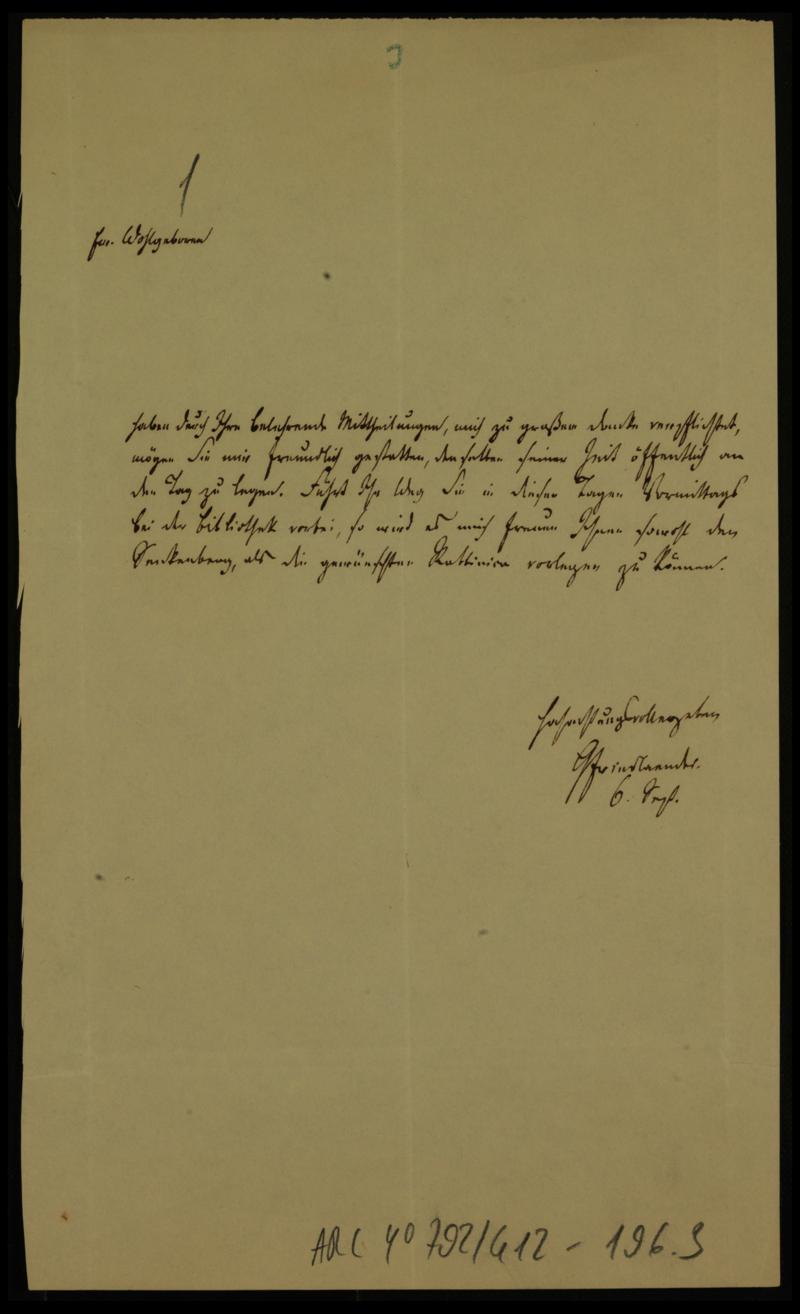 1
Ew. Wohlgeboren
haben durch Ihre belehrende Mittheilungen, mich zu großem Danke verpflichtet,
mögen Sie mir freundlich gestatten, denselben seiner Zeit öffentlich an
den Tag zu legen. Führt Ihr Weg Sie in diesen Tagen Vormittags
bei der Bibliothek vorbei, so wird es mich freuen Ihnen sowohl den
Senkenberg, als die gewünschten vorlegen zu können.
Hochachtungsvoll ergeben
Friedlaender.
6. Sept.
ARC 4° 792/G12 - 196.3